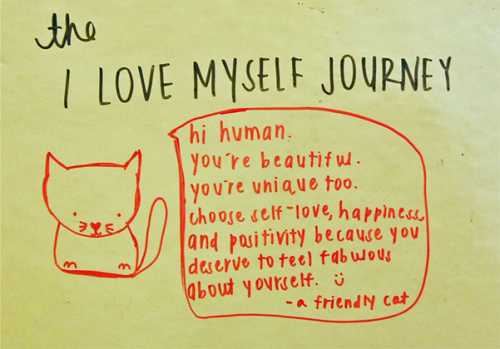 the
I LOVE MYSELF JOURNEY
hi human.
you're beautiful.
you're unique too.
choose self-love, happiness,
and positivity because you
deserve to feel fabulous
about yourself. :)
- a friendly cat